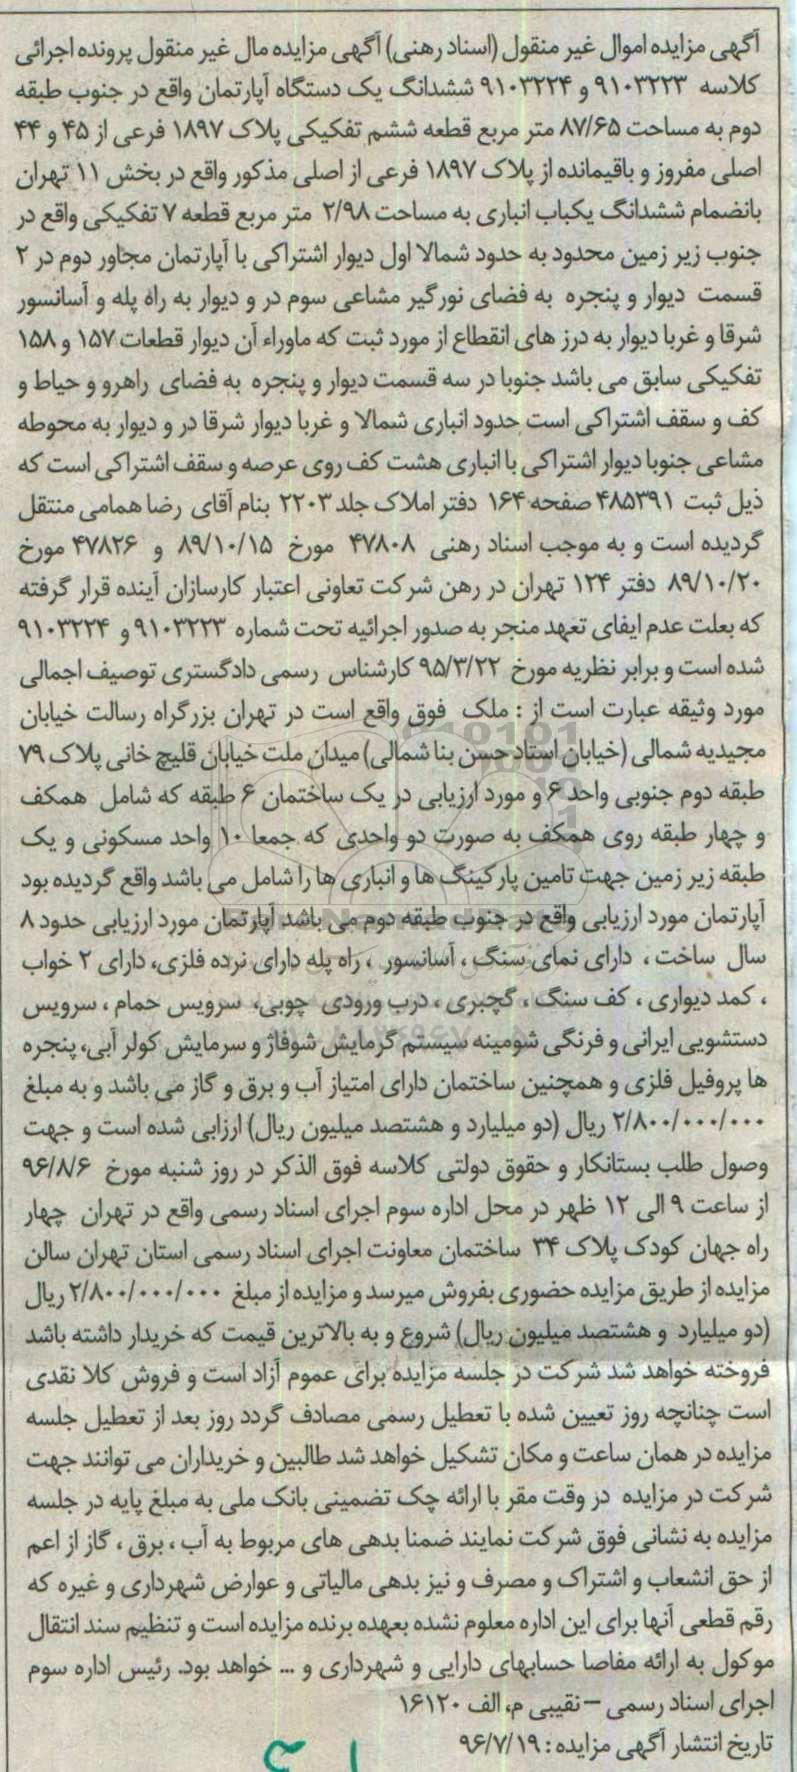 آگهی مزایده اموال غیر منقول (اسناد رهنی) آگهی مزایده مال غیر منقول پرونده اجرائی
کلاسه ۹۱۰۳۲۲۳ و ۹۱۰۳۲۲۴ ششدانگ یک دستگاه آپارتمان واقع در جنوب طبقه
دوم به مساحت ۸۷/۶۵ متر مربع قطعه ششم تفکیکی پلاک ۱۸۹۷ فرعی از ۴۵ و ۴۴
اصلی مفروز و باقیمانده از پلاک ۱۸۹۷ فرعی از اصلی مذکور واقع در بخش ۱۱ تهران
بانضمام ششدانگ یکباب انباری به مساحت ۲/۹۸ متر مربع قطعه ۷ تفکیکی واقع در
جنوب زیر زمین محدود به حدود شمالا اول دیوار اشتراکی با آپارتمان مجاور دوم در ۲
قسمت دیوار و پنجره به فضای نورگیر مشاعی سوم در و دیوار به راه پله و آسانسور
شرقا و غربا دیوار به درز های انقطاع از مورد ثبت که ماوراء آن دیوار قطعات ۱۵۷ و ۱۵۸
تفکیکی سابق می باشد جنوبا در سه قسمت دیوار و پنجره به فضای راهرو و حیاط و
کف و سقف اشتراکی است حدود انباری شمالا و غربا دیوار شرقا در و دیوار به محوطه
مشاعی جنوبا دیوار اشتراکی با انباری هشت کف روی عرصه و سقف اشتراکی است که
ذیل ثبت ۴۸۵۳۹۱ صفحه ۱۶۴ دفتر املاک جلد ۲۲۰۳ بنام آقای رضا همامی منتقل
گردیده است و به موجب اسناد رهنی ۴۷۸۰۸ مورخ ۸۹/۱۰/۱۵ و ۴۷۸۲۶ مورخ
۸۹/۱۰/۲۰ دفتر ۱۲۴ تهران در رهن شرکت تعاونی اعتبار کارسازان آینده قرار گرفته
که بعلت عدم ایفای تعهد منجر به صدور اجرائیه تحت شماره ۹۱۰۳۲۲۳ و ۹۱۰۳۲۲۴
شده است و برابر نظریه مورخ ۹۵/۳/۲۲ کارشناس رسمی دادگستری توصیف اجمالی
مورد وثیقه عبارت است از : ملک فوق واقع است در تهران بزرگراه رسالت خیابان
مجیدیه شمالی (خیابان استاد حسن بنا شمالی) میدان ملت خیابان قلیچ خانی پلاک ۷۹
طبقه دوم جنوبی واحد ۶ و مورد ارزیابی در یک ساختمان ۶ طبقه که شامل همکف
و چهار طبقه روی همکف به صورت دو واحدی که جمعا ۱۰ واحد مسکونی و یک
طبقه زیر زمین جهت تامین پارکینگ ها و انباری ها را شامل می باشد واقع گردیده بود
آپارتمان مورد ارزیابی واقع در جنوب طبقه دوم می باشد آپارتمان مورد ارزیابی حدود ۸
سال ساخت ، دارای نمای سنگ ، آسانسور ، راه پله دارای نرده فلزی، دارای ۲ خواب
، کمد دیواری ، کف سنگ ، گچبری ، درب ورودی چوبی، سرویس حمام ، سرویس
دستشویی ایرانی و فرنگی شومینه سیستم گرمایش شوفاژ و سرمایش کولر آبی، پنجره
ها پروفیل فلزی و همچنین ساختمان دارای امتیاز آب و برق و گاز می باشد و به مبلغ
۲/۸۰۰/۰۰۰/۰۰۰ ریال (دو میلیارد و هشتصد میلیون ریال) ارزابی شده است و جهت
وصول طلب بستانکار و حقوق دولتی کلاسه فوق الذکر در روز شنبه مورخ ۹۶/۸/۶
از ساعت ۹ الی ۱۲ ظهر در محل اداره سوم اجرای اسناد رسمی واقع در تهران چهار
راه جهان کودک پلاک ۳۴ ساختمان معاونت اجرای اسناد رسمی استان تهران سالن
مزایده از طریق مزایده حضوری بفروش میرسد و مزایده از مبلغ ۲/۸۰۰/۰۰۰/۰۰۰ ریال
(دو میلیارد و هشتصد میلیون ریال) شروع و به بالاترین قیمت که خریدار داشته باشد
فروخته خواهد شد شرکت در جلسه مزایده برای عموم آزاد است و فروش کلا نقدی
است چنانچه روز تعیین شده با تعطیل رسمی مصادف گردد روز بعد از تعطیل جلسه
مزایده در همان ساعت و مکان تشکیل خواهد شد طالبین و خریداران می توانند جهت
شرکت در مزایده در وقت مقر با ارائه چک تضمینی بانک ملی به مبلغ پایه در جلسه
مزایده به نشانی فوق شرکت نمایند ضمنا بدهی های مربوط به آب ، برق ، گاز از اعم
از حق انشعاب و اشتراک و مصرف و نیز بدهی مالیاتی و عوارض شهرداری و غیره که
رقم قطعی آنها برای این اداره معلوم نشده بعهده برنده مزایده است و تنظیم سند انتقال
موکول به ارائه مفاصا حسابهای دارایی و شهرداری و ... خواهد بود. رئیس اداره سوم
اجرای اسناد رسمی – نقیبی م. الف ۱۶۱۲۰
تاریخ انتشار آگهی مزایده : ۹۶/۷/۱۹